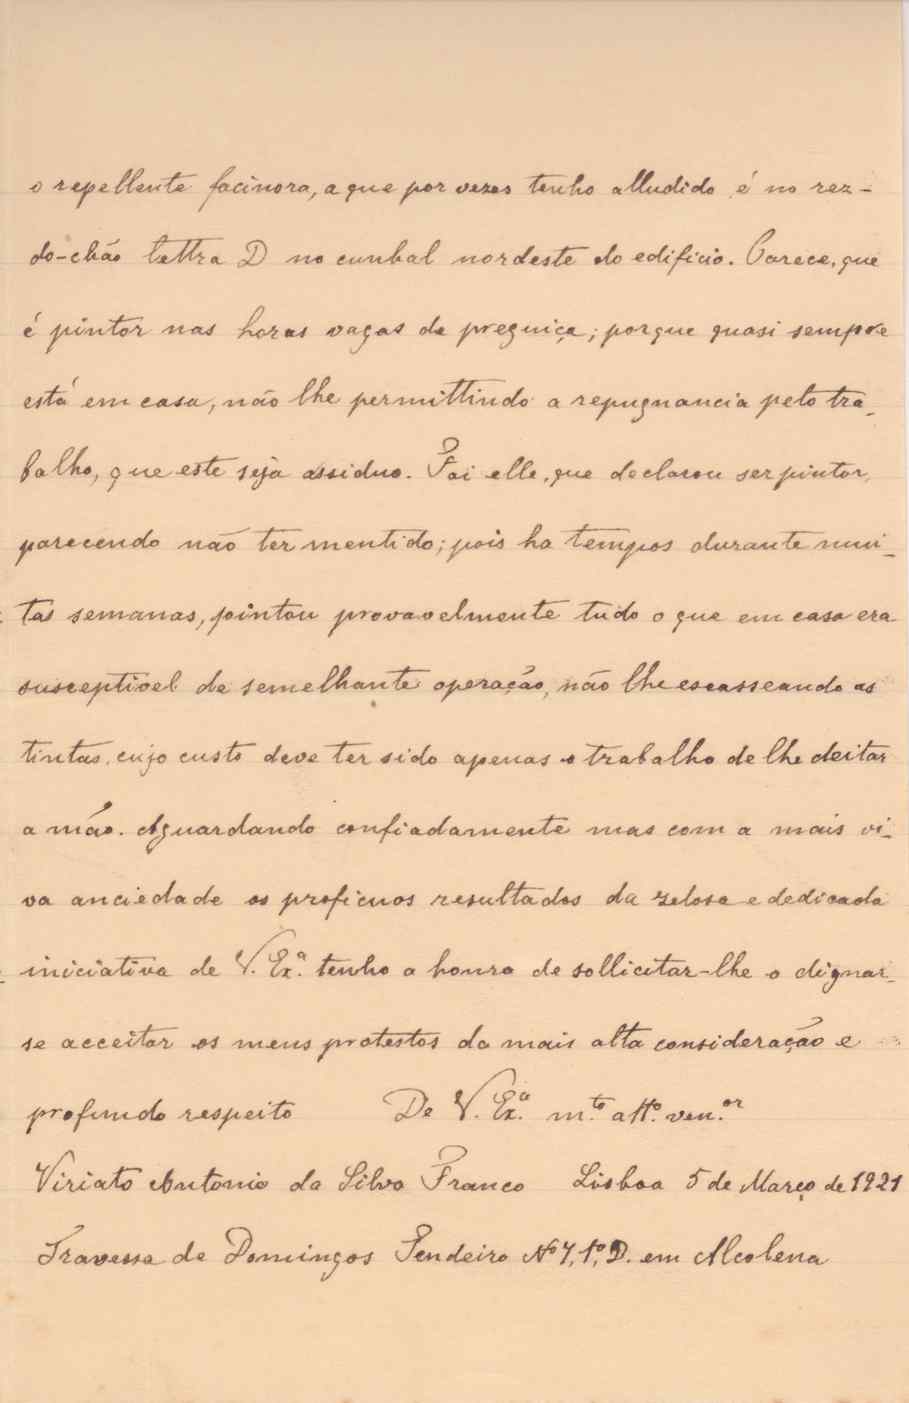 o repellente facinora, a que por vezes tenho alludido é no rez-
do-chão lettra D no cunhal nordeste do edificio. Parece, que
é pintor nas horas vagas da preguiça; porque quasi sempre
está em casa, não lhe permittindo a repugnancia pelo tra-
balho, que este seja assiduo. Foi elle, que declarou ser pintor,
parecendo não ter mentido; pois ha tempos durante mui-
tas semanas, pintou provavelmente tudo o que em casa era
susceptivel de semelhante operação, não lhe escasseando as
tintas, cujo custo deve ter sido apenas o trabalho de lhe deitar
a mão. Aguardando confiadamente mas com a mais vi-
va anciedade os proficuos resultados da zelosa e dedicada
iniciativa de V. Ex.ª tenho a honra de sollicitar-lhe o dignar-
se acceitar os meus protestos da mais alta consideração e
profundo respeito De V. Ex.ª m.to att.o ven.or
Viriato Antonio da Silva Franco Lisboa 5 de Março de 1921
Travessa de Domingos Tendeiro Nº 7, 1º, D. em Alcolena